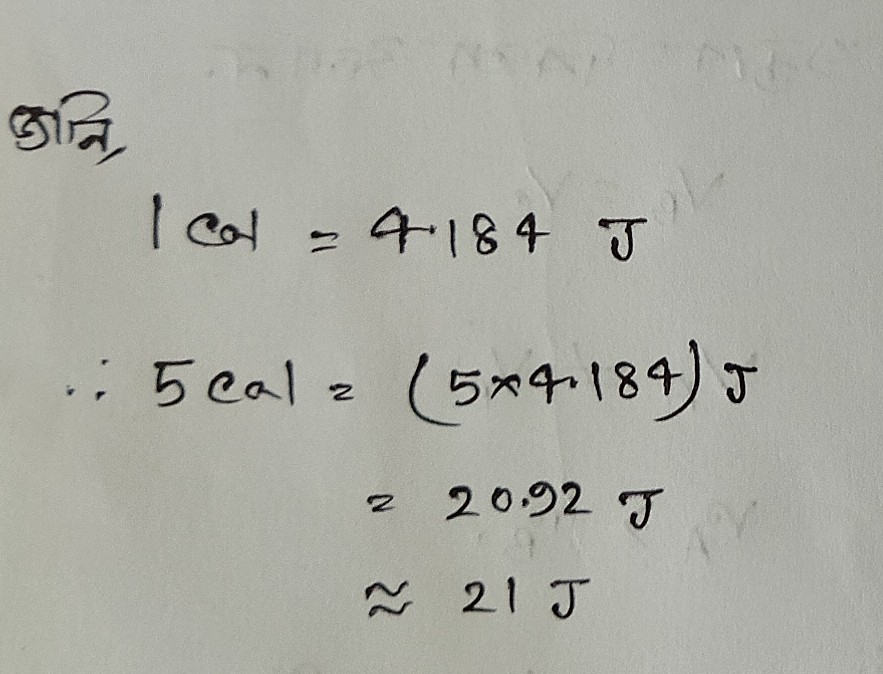 জানি,
1 Cal = 4.184 J
∴ 5 Cal = (5×4.184) J
= 20.92 J
≈ 21 J